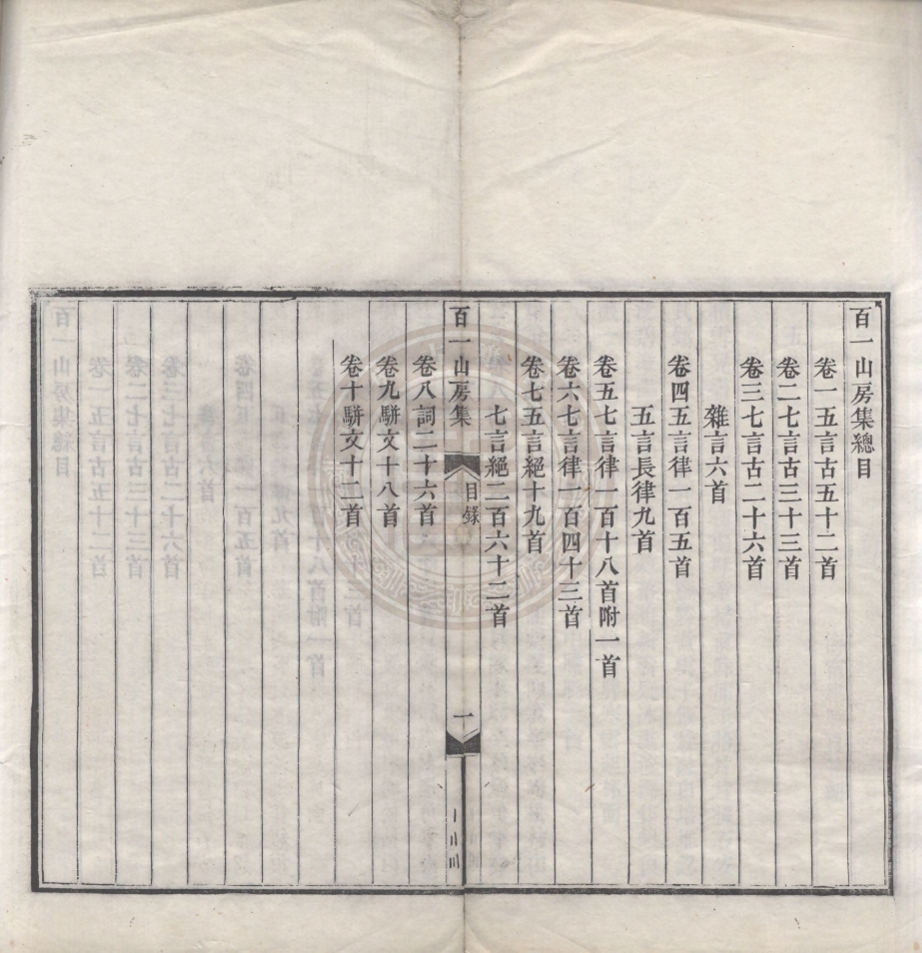 百一山房集總目
卷一五言古五十二首
卷二七言古三十三首
卷三七言古二十六首
雜言六首
卷四五言律一百五首
五言長律九首
卷五七言律一百十八首附一首
卷六七言律一百四十三首
卷七五言絕十九首
七言絕二百六十二首
百一山房集
目錄
一
卷八詞二十六首
卷九駢文十八首
卷十駢文十二首